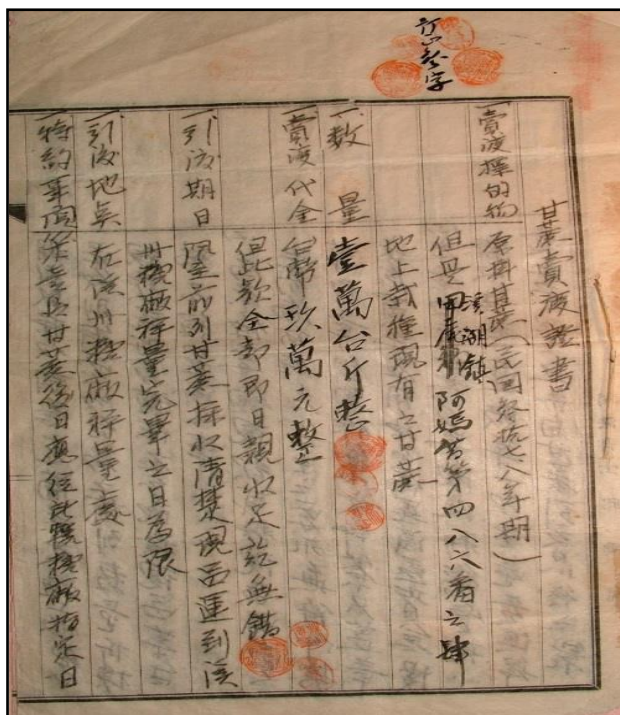 甘蔗賣渡證書
一賣渡標的物 原料甘蔗(民國叁拾七八年期)
但是溪湖鎮 阿媽厝第四八六番之肆
地上栽種現有之甘蔗
一数量 壹萬台斤整
一賣渡代金 台幣玖萬元整
但此款全部即日親收足訖無錯
一引渡期日 限至前列甘蔗採收清楚現品運到溪
州糖廠秤量完畢之日為限
一引渡地点 在溪州糖廠秤量處
一特約事項 此甘蔗後日應從此糖廠指定日